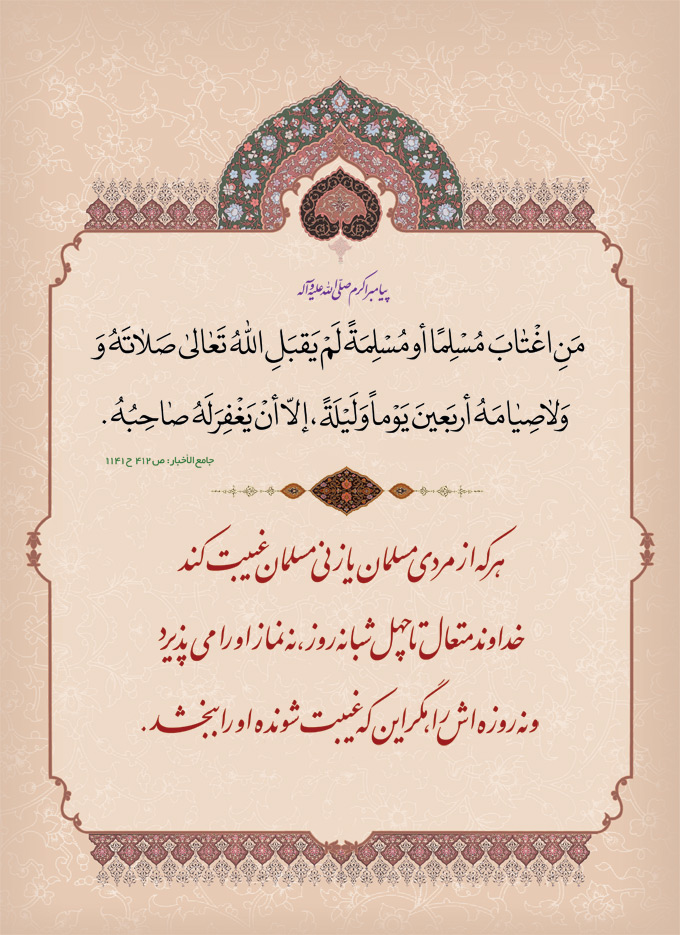 پیامبر اکرم صلّی الله علیه و آله
مَنِ اغْتٰابَ مُسْلِمًا أو مُسْلِمَةً لَمْ يَقبَلِ اللهُ تَعٰالىٰ صَلاٰتَهُ وَ
وَلاٰ صِيٰامَهُ أربَعينَ يَوْماً وَ لَيْلَةً ، إلاّ أنْ يَغْفِرَ لَهُ صٰاحِبُهُ .
جامع الأخبار : ص ۴۱۲ ح ۱۱۴۱
هرکه از مردی مسلمان یا زنی مسلمان غیبت کند
خداوند متعال تا چهل شبانه روز ، نه نماز او را می پذیرد
و نه روزه اش را ، مگر این که غیبت شونده او را ببخشد .